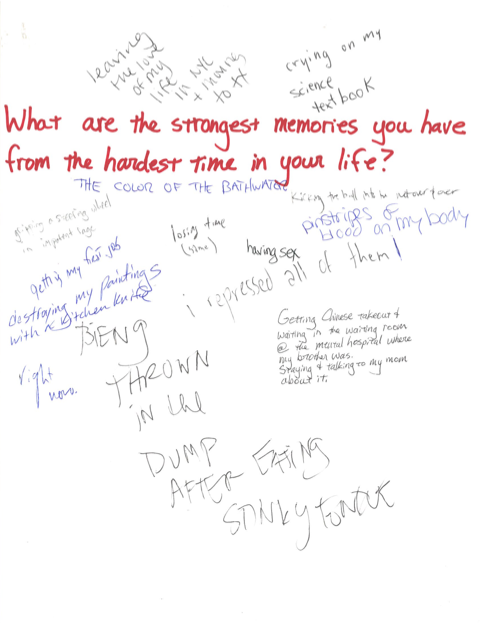 leaving
the love
of my
life
in NYC
+ moving
to TX
crying on my
science
textbook
What are the strongest memories you have
from the hardest time in your life?
THE COLOR OF THE BATHWATER
pinstripes of
blood on my body
losing time
(time)
having sex
getting my first job
destroying my paintings
with a kitchen knife
i repressed all of them!
right
now.
Getting Chinese takeout &
waiting in the waiting room
@ the mental hospital where
my brother was.
Staying & talking to my mom
about it.
BIENG
THROWN
in the
DUMP
AFTER EATTING
STINKY